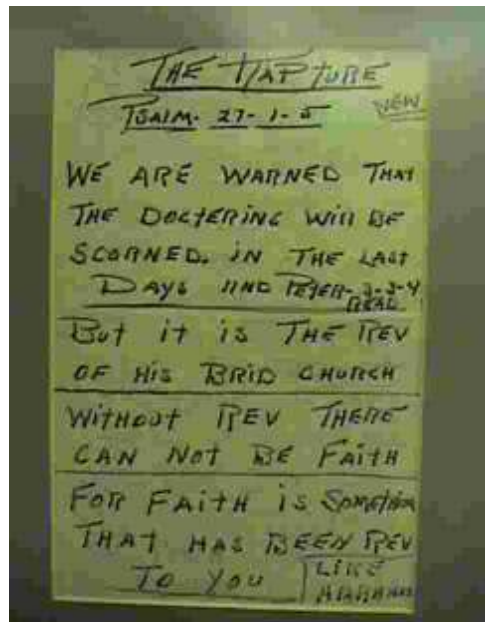 THE RAPTURE
PSALM. 27-1-5 NEW
WE ARE WARNED THAT
THE DOCTERINE WILL BE
SCORNED. IN THE LAST
DAYS 2ND PETER-3-3-4
READ
BUT it is THE REV
OF His BRID CHURCH
WITHOUT REV THERE
CAN NOT BE FAITH
FOR FAITH is SOMETHING
THAT HAS BEEN REV
TO YOU LIKE
ABRAHAM